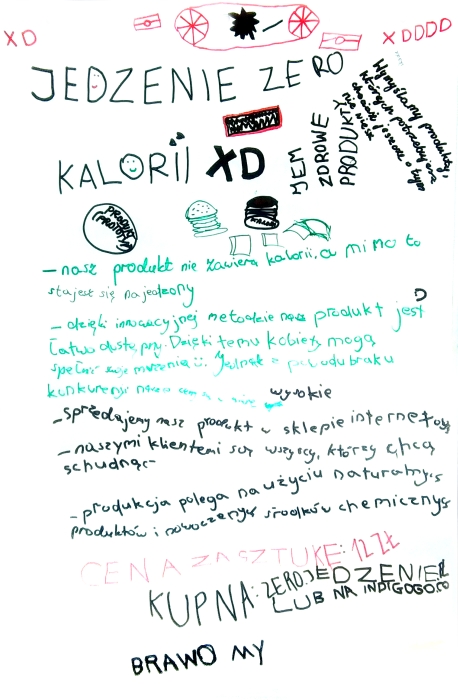 XD
XDDDD
JEDZENIE ZERO
KALORII XD
JEM
ZDROWE
PRODUKTY
Wymyślamy produkty,
których potrzebujesz
chociaż jeszcze o tym
nie wiesz
PRODUKT
- nasz produkt nie zawiera kalorii, a mimo to
stajest się najedzony
- dzięki innowacyjnej metodzie nasz produkt jest
łatwo dostępny. Dzięki temu kobiety mogą
spełnić swoje marzenia ;). Jednak z powodu braku
konkurencji nasza są wysokie
- sprzedajemy nasz produkt w sklepie internetowy
- naszymi klientami są wszyscy, którzy chcą
schudnąć
- produkcja polega na użyciu naturalnych
produktów i nowoczesnych środków chemicznych
CENA ZA SZTUKĘ: 12 ZŁ
KUPNA: ZEROJEDZENIE.PL
LUB NA INDIGOGO.CO
BRAWO MY